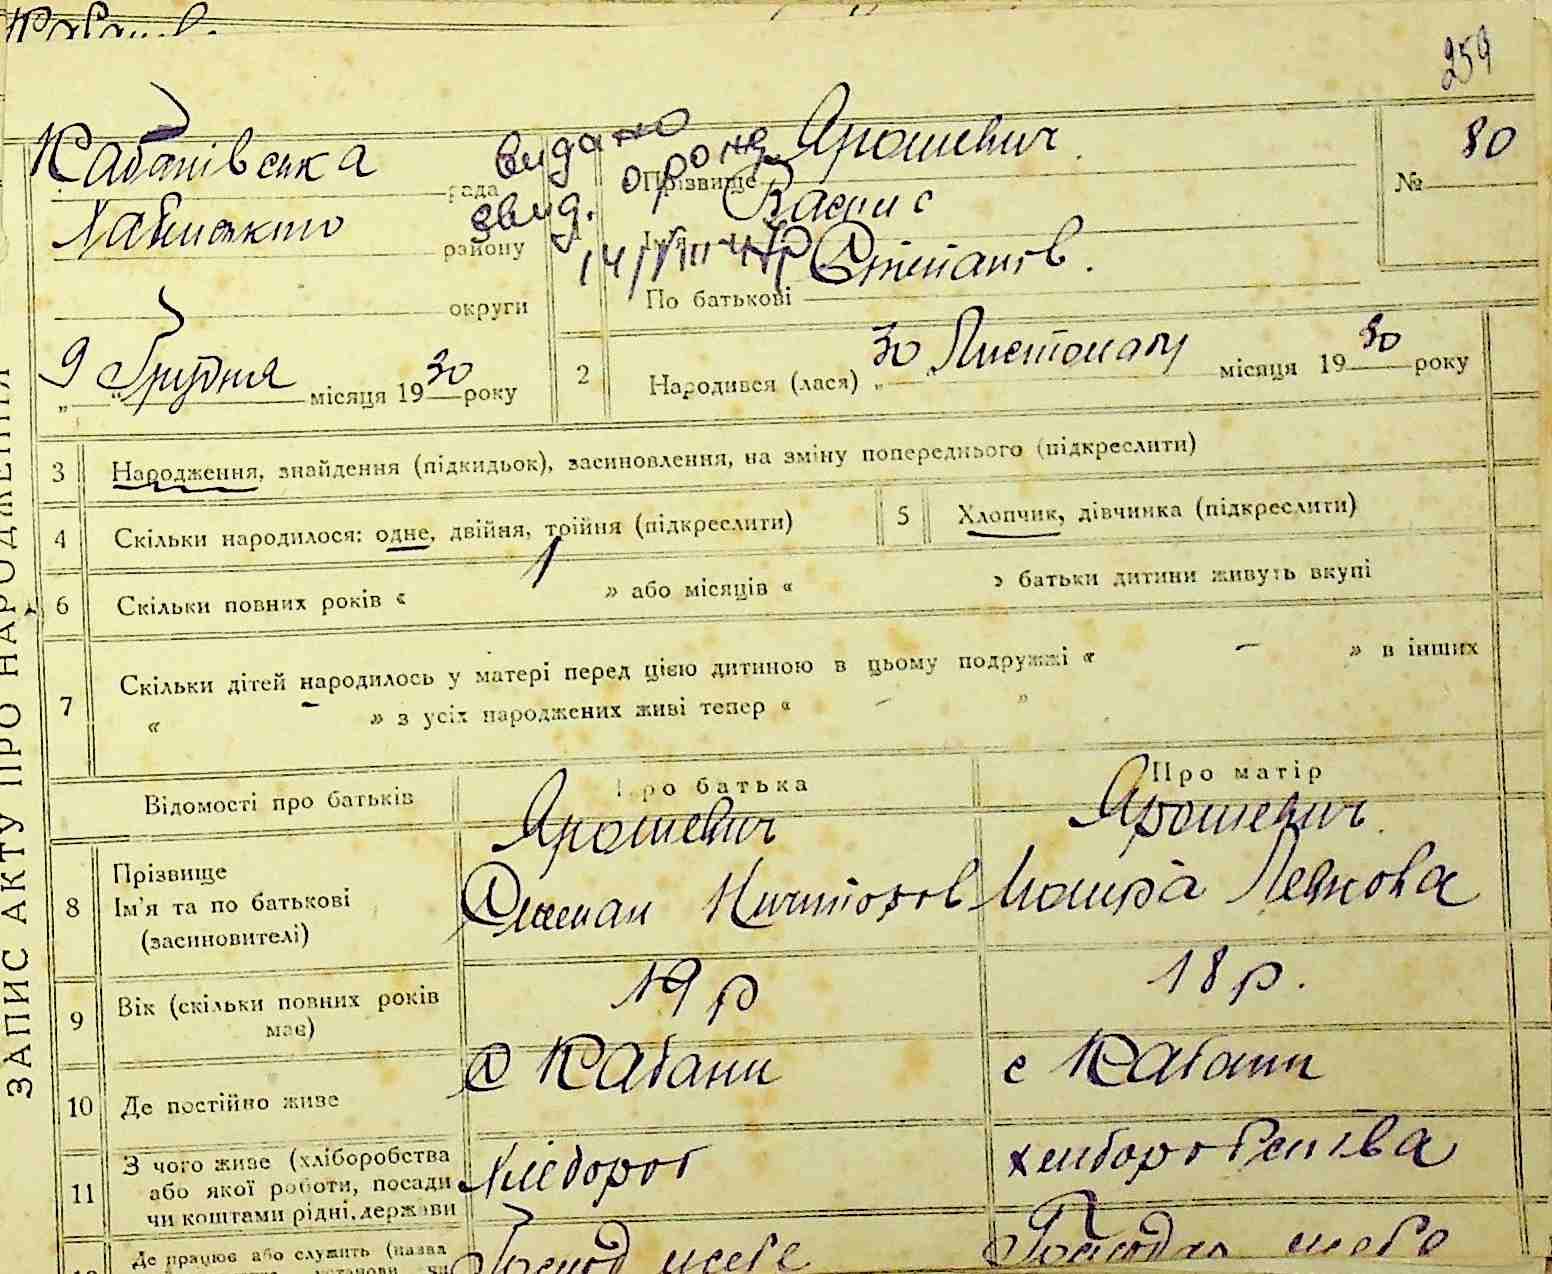 259
Кабанівська рада
району
округи
9 Грудня місяця 1930 року
видано
звид. 
14/VIII-47р
1 Прізвище Ярошевич
Ім'я Василь
По батькові Степанов.
№ 80
2 Народився (лася) „30 Листопаду місяця 1930 року
ЗАПИС АКТУ ПРО НАРОДЖЕННЯ
3 Народження, знайдення (підкидьок), засиновлення, на зміну попереднього (підкреслити)
4 Скільки народилося: одне, двійня, трійня (підкреслити)
5 Хлопчик, дівчинка (підкреслити)
6 Скільки повних років « 1 » або місяців « » батьки дитини живуть вкупі
7 Скільки дітей народилось у матері перед цією дитиною в цьому подружжі « – » в інших
« – » з усіх народжених живі тепер « – »
Відомості про батьків
Про батька
Про матір
8 Прізвище
Ім'я та по батькові
(засиновителі)
Ярошевич
Степан
Ярошевич
9 Вік (скільки повних років
має)
19 р
18 р.
10 Де постійно живе
с Кабани
с Кабани
11 З чого живе (хліборобства
або якої роботи, посади
чи коштами рідні, держави
Хлібороб
хліборобства
Де працює або служить (назва